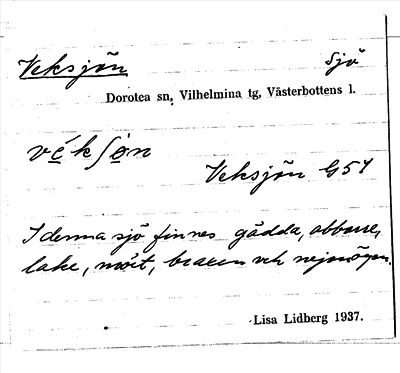 Veksjön Sjö
Dorotea sn, Vilhelmina tg, Västerbottens l.
véksön
Veksjön G51
I denna sjö finnes gädda, abborre,
lake, mört, braxen och nejonögon.
Lisa Lidberg 1937.